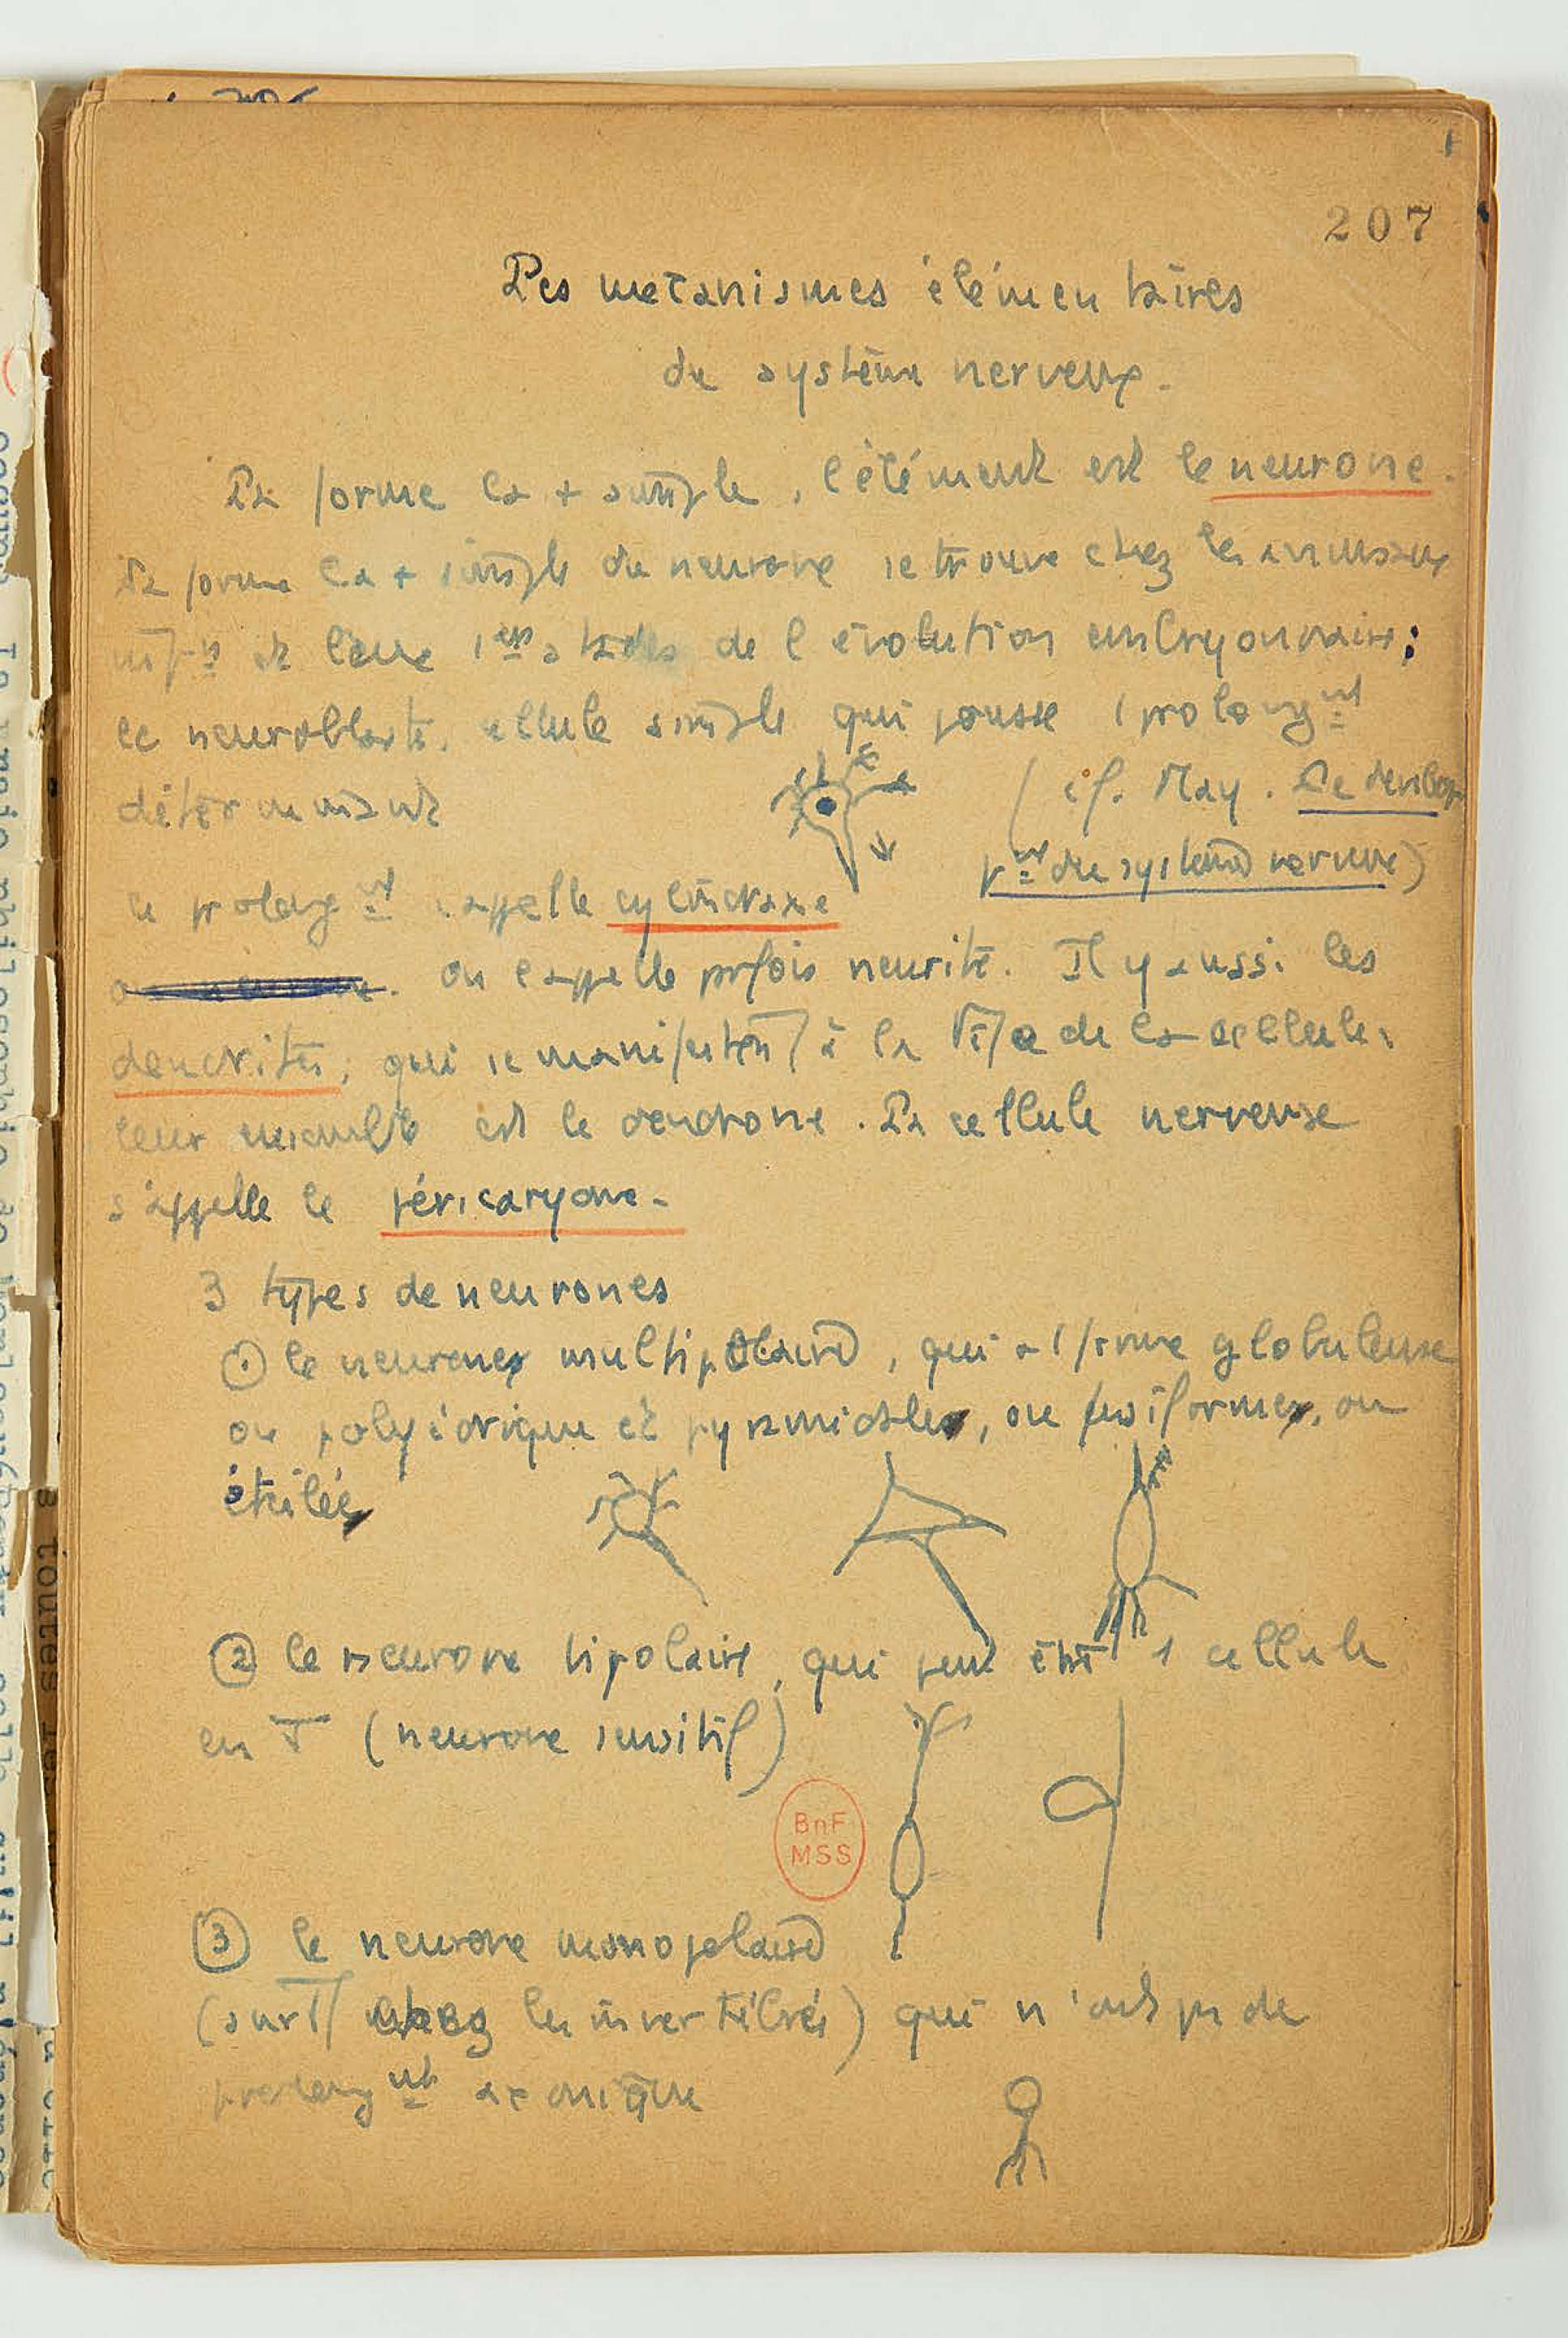 207
Les mécanismes élémentaires
du système nerveux.
La forme la + simple, l'élément est le neurone.
La forme la + simple du neurone se trouve chez les animaux
infrs et leurs 1ers stades de l'évolution embryonnaire :
le neuroblaste, cellule simple qui pousse 1 prolongnt
déterminant
(cf. May. Le dévelop
pnt du système nerveux)
Ce prolongnt s'appelle cylindraxe
on l'appelle prfois neurite. Il y a aussi les
dendrites, qui se manifestent à la de la cellule.
leur ensemble est le dendrone. La cellule nerveuse
s'appelle le péricaryone.
3 types de neurones
① le neurone multipolaire, qui a 1 forme globuleuse
ou polyédrique et pyramidale, ou fusiforme, ou
étoilée
② le neurone bipolaire, qui peut être 1 cellule
en T (neurone sensitif)
BnF
MSS
③ le neurone monopolaire
(surtt chez les invertébrés) qui n'ont ps de
prolongnt axonique